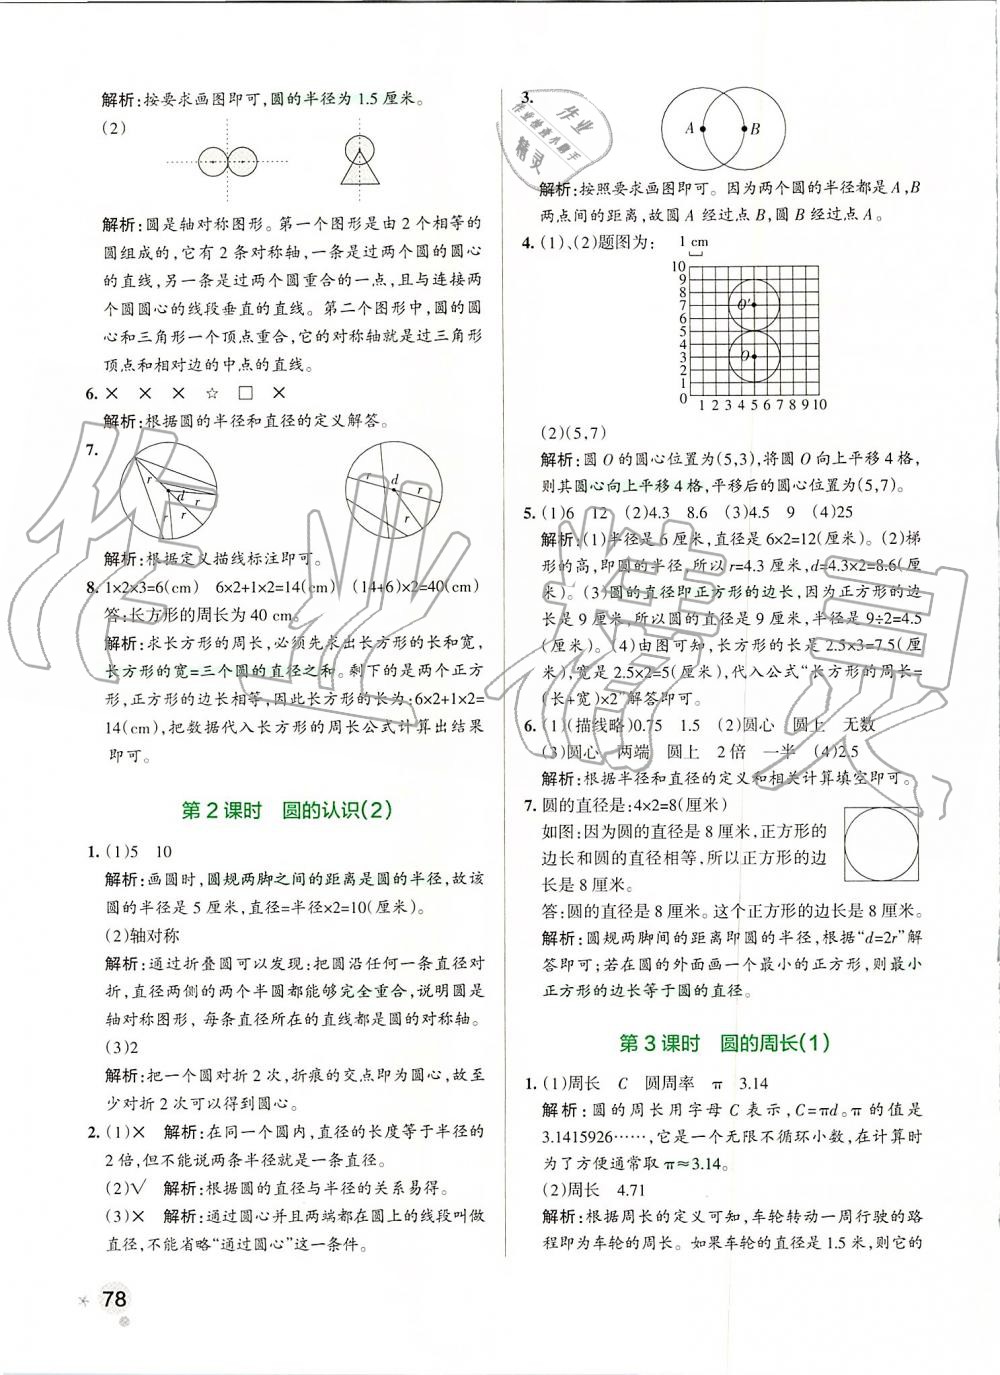 解析:按要求画图即可,圆的半径为1.5厘米。
(2)
解析:圆是轴对称图形。第一个图形是由2个相等的
圆组成的,它有2条对称轴,一条是过两个圆的圆心
的直线,另一条是过两个圆重合的一点,且与连接两
个圆圆心的线段垂直的直线。第二个图形中,圆的圆
心和三角形一个顶点重合,它的对称轴就是过三角形
顶点和相对边的中点的直线。
6. × × × ☆ □ ×
解析:根据圆的半径和直径的定义解答。
7.
r r d r r
d r r
解析:根据定义描线标注即可。
8. 1×2×3=6(cm) 6×2+1×2=14(cm) (14+6)×2=40(cm)
答:长方形的周长为40 cm。
解析:求长方形的周长,必须先求出长方形的长和宽,
长方形的宽=三个圆的直径之和。剩下的是两个正方
形,正方形的边长相等,因此长方形的长为:6×2+1×2=
14(cm),把数据代入长方形的周长公式计算出结果
即可。
第2课时 圆的认识(2)
1. (1)5 10
解析:画圆时,圆规两脚之间的距离是圆的半径,故该
圆的半径是5厘米,直径=半径×2=10(厘米)。
(2)轴对称
解析:通过折叠圆可以发现:把圆沿任何一条直径对
折,直径两侧的两个半圆都能够完全重合,说明圆是
轴对称图形,每条直径所在的直线都是圆的对称轴。
(3)2
解析:把一个圆对折2次,折痕的交点即为圆心,故至
少对折2次可以得到圆心。
2. (1)× 解析:在同一个圆内,直径的长度等于半径的
2倍,但不能说两条半径就是一条直径。
(2)√ 解析:根据圆的直径与半径的关系易得。
(3)× 解析:通过圆心并且两端都在圆上的线段叫做
直径,不能省略“通过圆心”这一条件。
78
3.
A B
解析:按照要求画图即可。因为两个圆的半径都是A,B
两点间的距离,故圆A经过点B,圆B经过点A。
4. (1)、(2)题图为:
1 cm
10
9
8
7
6
5
4
3
2
1
0 1 2 3 4 5 6 7 8 9 10
O′
O
(2)(5,7)
解析:圆O的圆心位置为(5,3),将圆O向上平移4格,
则其圆心向上平移4格,平移后的圆心位置为(5,7)。
5. (1)6 12 (2)4.3 8.6 (3)4.5 9 (4)25
解析:(1)半径是6厘米,直径是6×2=12(厘米)。(2)梯
形的高,即圆的半径,所以r=4.3厘米,d=4.3×2=8.6(厘
米)。(3)圆的直径即正方形的边长,因为正方形的边
长是9厘米,所以圆的直径是9厘米,半径是9÷2=4.5
(厘米)。(4)由图可知,长方形的长是2.5×3=7.5(厘
米),宽是2.5×2=5(厘米),代入公式“长方形的周长=
(长+宽)×2”解答即可。
6. (1)(描线略)0.75 1.5 (2)圆心 圆上 无数
(3)圆心 两端 圆上 2倍 一半 (4)2.5
解析:根据半径和直径的定义和相关计算填空即可。
7. 圆的直径是:4×2=8(厘米)
如图:因为圆的直径是8厘米,正方形的
边长和圆的直径相等,所以正方形的边
长是8厘米。
答:圆的直径是8厘米。这个正方形的边长是8厘米。
解析:圆规两脚间的距离即圆的半径,根据“d=2r”解
答即可;若在圆的外面画一个最小的正方形,则最小
正方形的边长等于圆的直径。
第3课时 圆的周长(1)
1. (1)周长 C 圆周率 π 3.14
解析:圆的周长用字母C表示,C=πd。π的值是
3.1415926……,它是一个无限不循环小数,在计算时
为了方便通常取π≈3.14。
(2)周长 4.71
解析:根据周长的定义可知,车轮转动一周行驶的路
程即为车轮的周长。如果车轮的直径是1.5米,则它的
作业
作业检查小助手
精灵
作业精灵